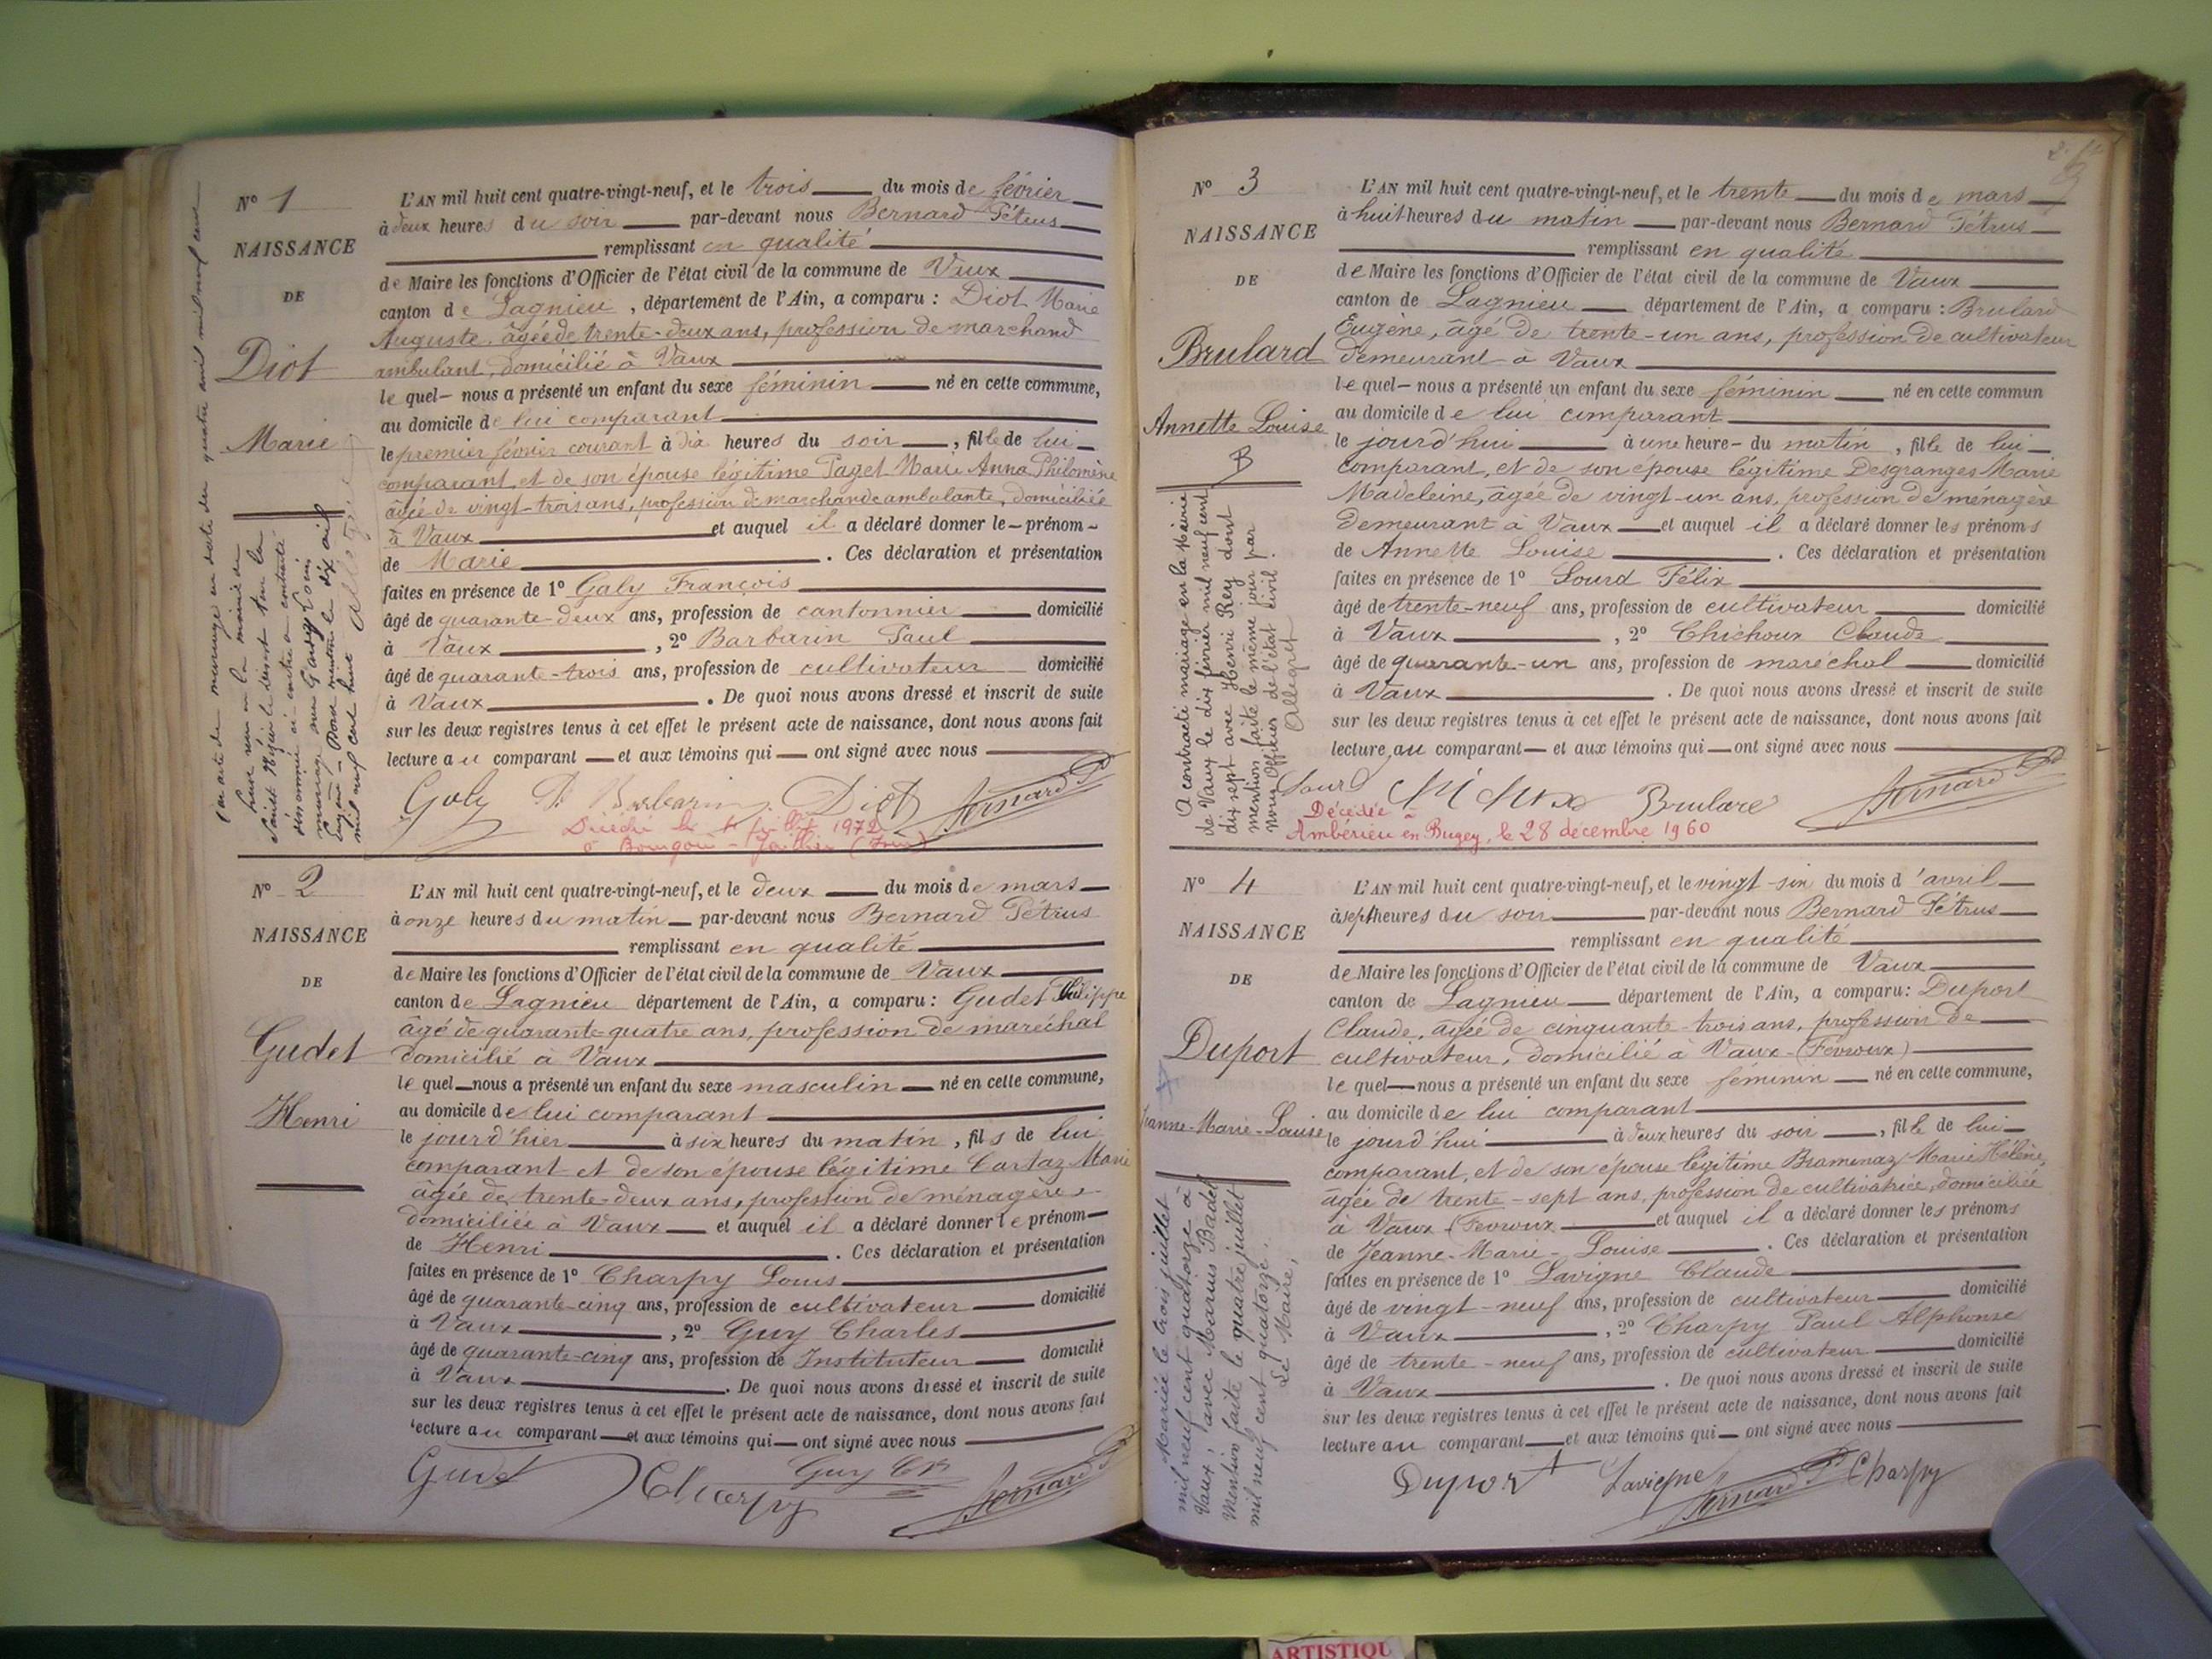 N° 1
NAISSANCE
DE
Diot
Marie
L'AN mil huit cent quatre-vingt-neuf, et le trois du mois de février
à deux heures du soir par-devant nous Bernard Pétrus
remplissant en qualité
de Maire les fonctions d'Officier de l'état civil de la commune de Vaux
canton de Lagnieu, département de l'Ain, a comparu : Diot Marie
Auguste, âgée de trente-deux ans, profession de marchand
ambulant, domicilié à Vaux
lequel nous a présenté un enfant du sexe féminin né en cette commune,
au domicile de lui comparant
le premier février courant à dix heures du soir, fille de lui
comparant, et de son épouse légitime Paget Marie Anna Philomène
âgée de vingt-trois ans, profession de marchande ambulante, domiciliée
à Vaux et auquel il a déclaré donner le prénom
de Marie. Ces déclaration et présentation
faites en présence de 1° Galy François
âgé de quarante-deux ans, profession de cantonnier domicilié
à Vaux, 2° Barbarin Paul
âgé de quarante-trois ans, profession de cultivateur domicilié
à Vaux. De quoi nous avons dressé et inscrit de suite
sur les deux registres tenus à cet effet le présent acte de naissance, dont nous avons fait
lecture au comparant et aux témoins qui ont signé avec nous
Galy P. Barbarin Diot Bernard P
Décédé le juillet 1972
à Bourgoin-Jallieu
N° 2
NAISSANCE
DE
Gudet
Henri
L'AN mil huit cent quatre-vingt-neuf, et le deux du mois de mars
à onze heures du matin par-devant nous Bernard Pétrus
remplissant en qualité
de Maire les fonctions d'Officier de l'état civil de la commune de Vaux
canton de Lagnieu département de l'Ain, a comparu : Gudet Philippe
âgé de quarante-quatre ans, profession de maréchal
domicilié à Vaux
lequel nous a présenté un enfant du sexe masculin né en cette commune,
au domicile de lui comparant
le jourd'hier à six heures du matin, fils de lui
comparant et de son épouse légitime Cartaz Marie
âgée de trente-deux ans, profession de ménagère
domiciliée à Vaux et auquel il a déclaré donner le prénom
de Henri. Ces déclaration et présentation
faites en présence de 1° Charpy Louis
âgé de quarante-cinq ans, profession de cultivateur domicilié
à Vaux, 2° Guy Charles
âgé de quarante-cinq ans, profession de Instituteur domicilié
à Vaux. De quoi nous avons dressé et inscrit de suite
sur les deux registres tenus à cet effet le présent acte de naissance, dont nous avons fait
lecture au comparant et aux témoins qui ont signé avec nous
Gudet Charpy Guy Ch Bernard P
N° 3
NAISSANCE
DE
Brulard
Annette Louise
A contracté mariage en la Mairie
de Vaux le dix février mil neuf cent
dix sept avec Henri Rey dont
mention faite le même jour par
nous Officier de l'état civil.
Allegret
L'AN mil huit cent quatre-vingt-neuf, et le trente du mois de mars
à huit heures du matin par-devant nous Bernard Pétrus
remplissant en qualité
de Maire les fonctions d'Officier de l'état civil de la commune de Vaux
canton de Lagnieu département de l'Ain, a comparu : Brulard
Eugène, âgé de trente-un ans, profession de cultivateur
demeurant à Vaux
lequel nous a présenté un enfant du sexe féminin né en cette commun
au domicile de lui comparant
le jourd'hui à une heure du matin, fille de lui
comparant, et de son épouse légitime Desgranges Marie
Madeleine, âgée de vingt-un ans, profession de ménagère
demeurant à Vaux et auquel il a déclaré donner les prénoms
de Annette Louise. Ces déclaration et présentation
faites en présence de 1° Lourd Félix
âgé de trente-neuf ans, profession de cultivateur domicilié
à Vaux, 2° Chichoux Claude
âgé de quarante-un ans, profession de maréchal domicilié
à Vaux. De quoi nous avons dressé et inscrit de suite
sur les deux registres tenus à cet effet le présent acte de naissance, dont nous avons fait
lecture au comparant et aux témoins qui ont signé avec nous
Lourd Brulard Bernard P
Décédée à
Ambérieu en Bugey, le 28 décembre 1960
N° 4
NAISSANCE
DE
Duport
Jeanne-Marie-Louise
Mariée le trois juillet
mil neuf cent quatorze à
Vaux, avec Marius Badel
Mention faite le quatre juillet
mil neuf cent quatorze.
Le Maire,
L'AN mil huit cent quatre-vingt-neuf, et le vingt-six du mois d'avril
à sept heures du soir par-devant nous Bernard Pétrus
remplissant en qualité
de Maire les fonctions d'Officier de l'état civil de la commune de Vaux
canton de Lagnieu département de l'Ain, a comparu : Duport
Claude, âgée de cinquante-trois ans, profession de
cultivateur, domicilié à Vaux (Févroux)
lequel nous a présenté un enfant du sexe féminin né en cette commune,
au domicile de lui comparant
le jourd'hui à deux heures du soir, fille de lui
comparant, et de son épouse légitime Bramenaz Marie Hélène,
âgée de trente-sept ans, profession de cultivatrice, domiciliée
à Vaux (Fevroux et auquel il a déclaré donner les prénoms
de Jeanne-Marie-Louise. Ces déclaration et présentation
faites en présence de 1° Lavigne Claude
âgé de vingt-neuf ans, profession de cultivateur domicilié
à Vaux, 2° Charpy Paul Alphonse
âgé de trente-neuf ans, profession de cultivateur domicilié
à Vaux. De quoi nous avons dressé et inscrit de suite
sur les deux registres tenus à cet effet le présent acte de naissance, dont nous avons fait
lecture au comparant et aux témoins qui ont signé avec nous
Duport Lavigne Bernard P Charpy
ARTISTIQU